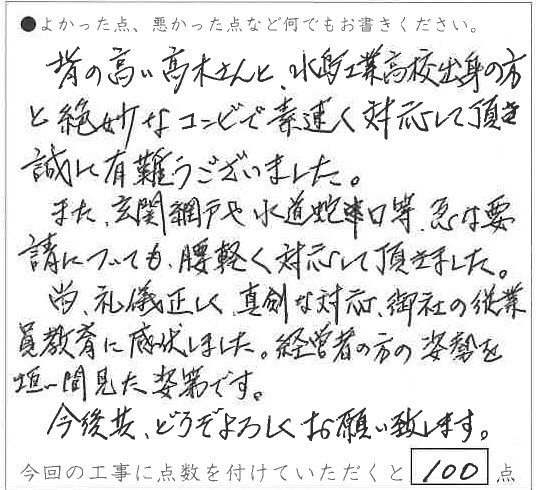 ●よかった点、悪かった点など何でもお書きください。
背の高い高木さんと、水島工業高校出身の方
と絶妙なコンビで素速く対応して頂き
誠に有難うございました。
また、玄関網戸や水道蛇口等、急な要
請についても、腰軽く対応して頂きました。
尚、礼儀正しく、真剣な対応、御社の従業
員教育に感伏しました。経営者の方の姿勢を
垣い間見た姿第です。
今後共、どうぞよろしくお願い致します。
今回の工事に点数を付けていただくと 100 点